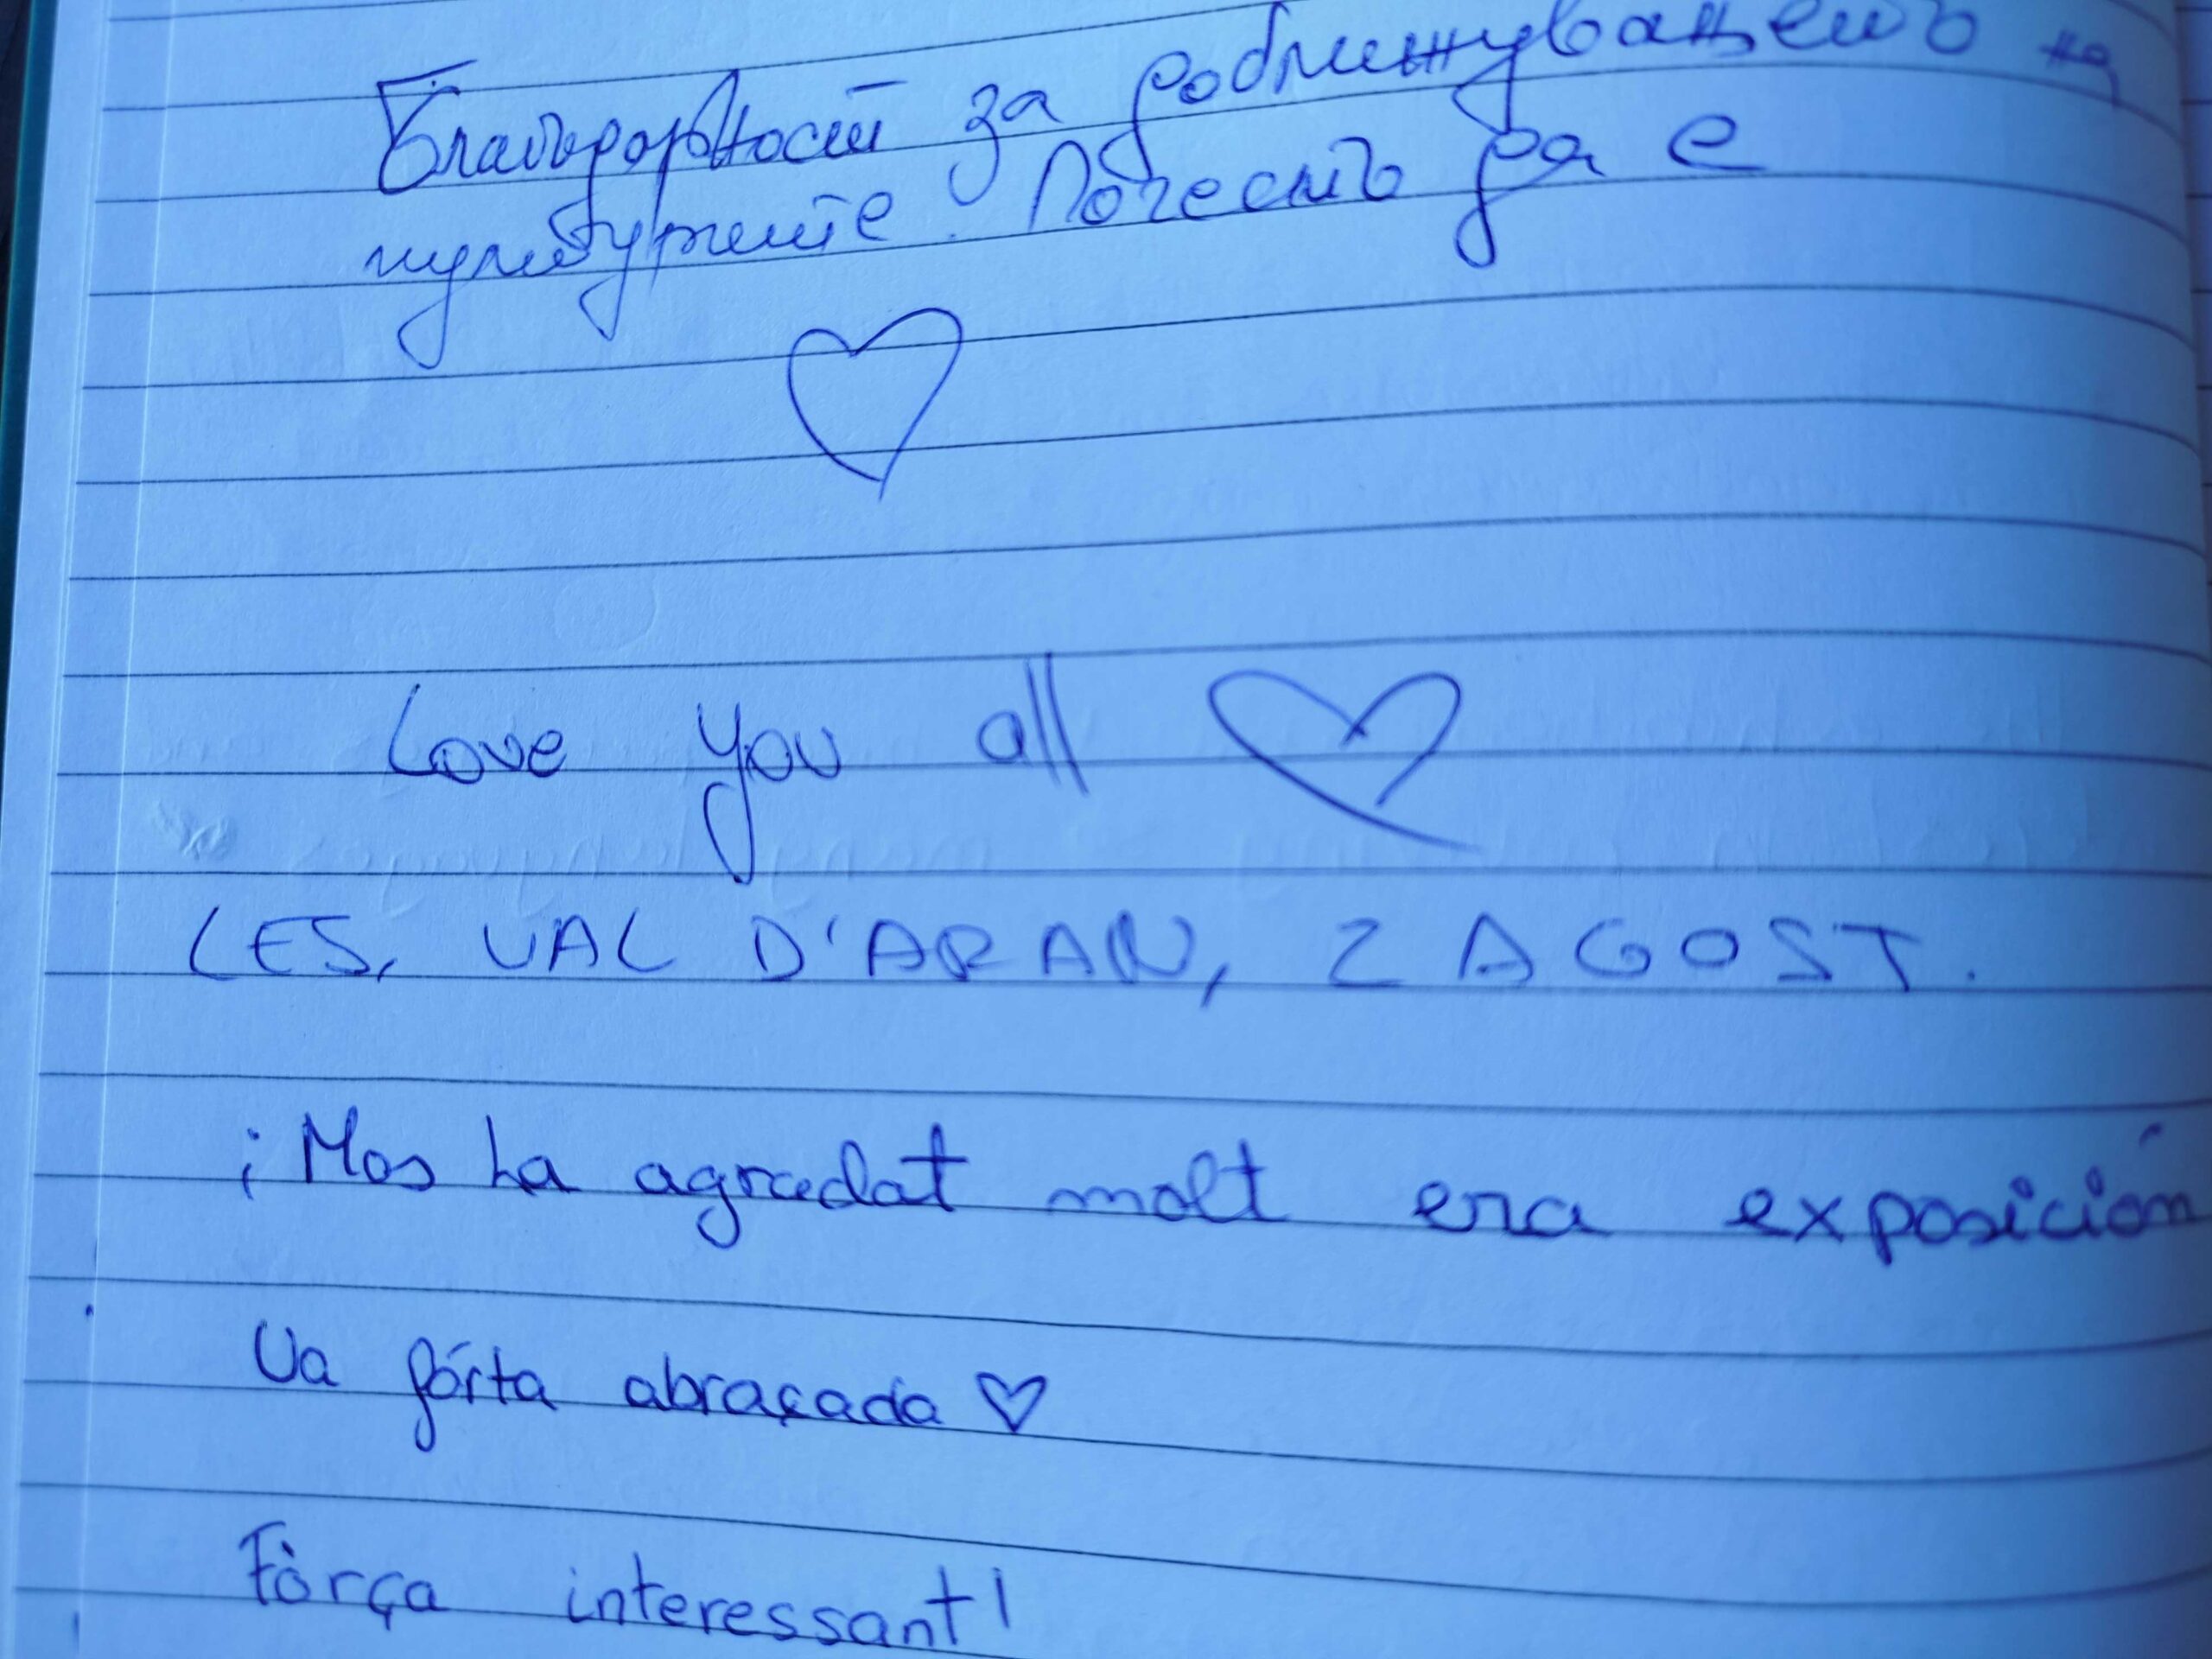 Благодарност за доближуването на
културите. Почест да е
Love you all
LES, VAL D'ARAN, 2 AGOST.
¡Mos ha agradat molt era exposición
Ua fórta abraçada
Fòrça interessant!